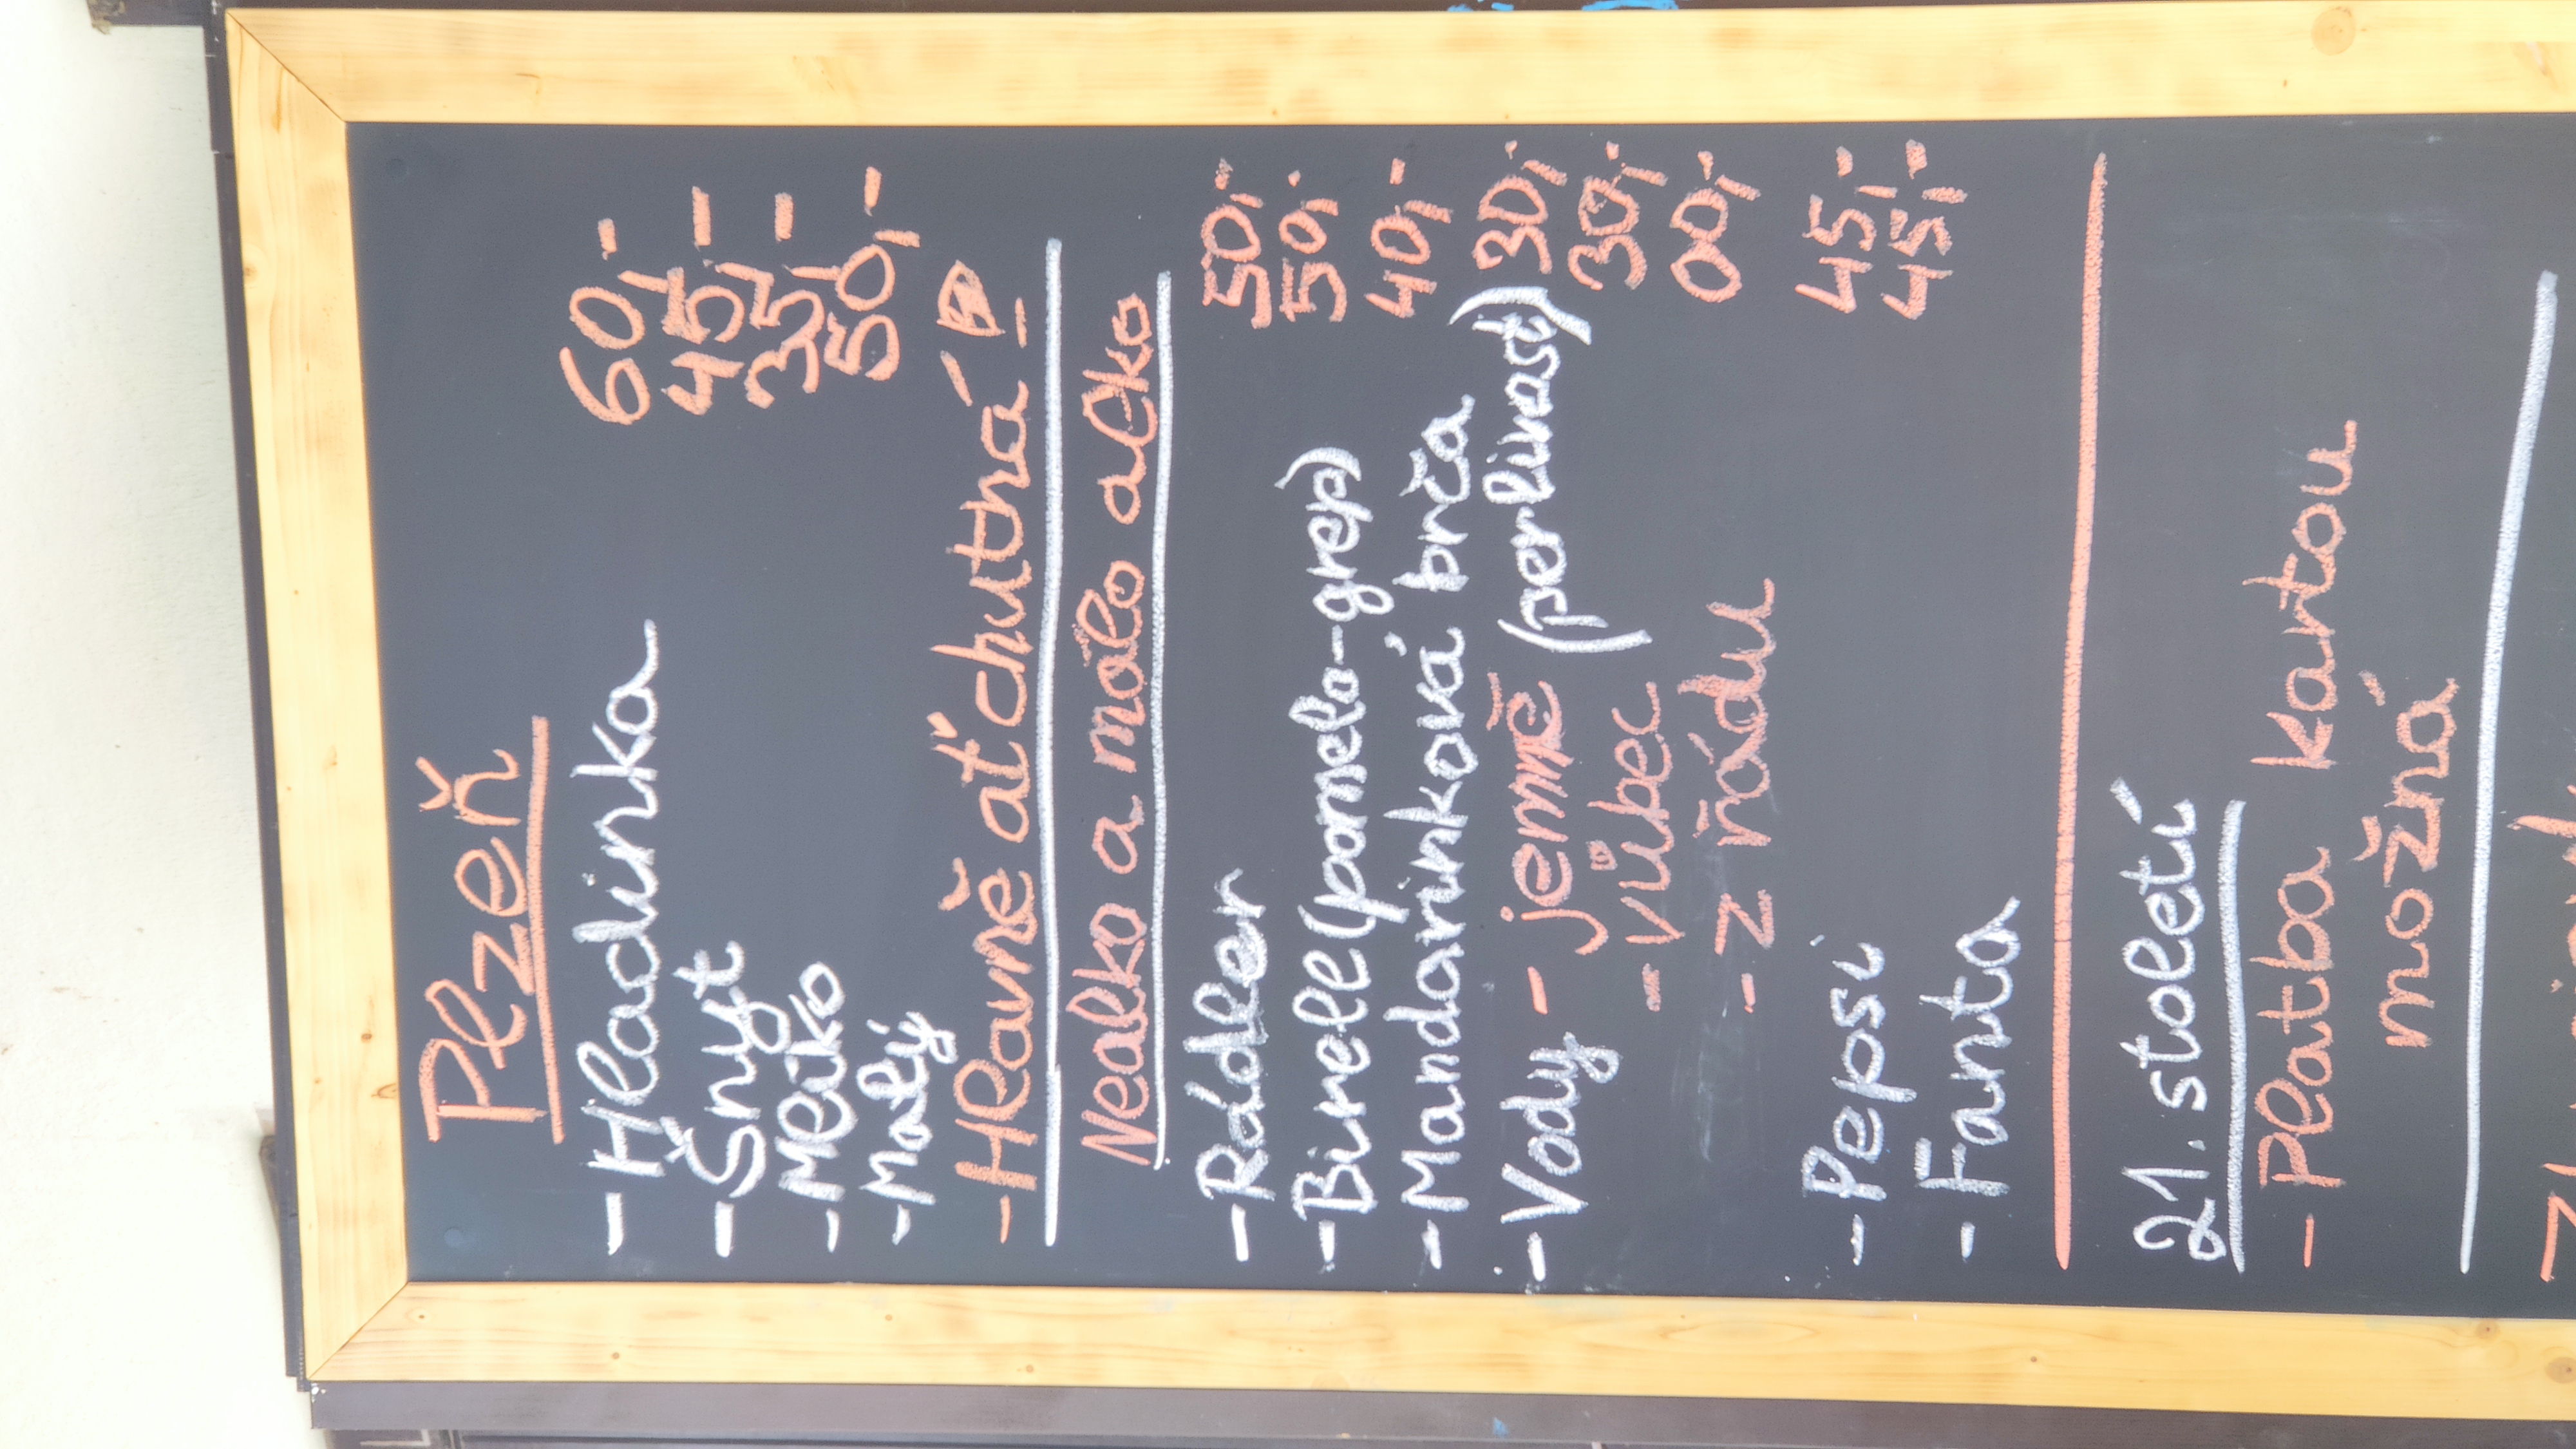 Plzeň
- Hladinka 60,-
- Šnyt 45,-
- Mlíko 35,-
- Malý 50,-
- Hlavně ať chutná
Nealko a málo alko
- Rádler 50,-
- Birell (pomelo-grep) 50,-
- Mandarinková brča 40,-
- Vody - jemně (perlinast) 30,-
- vůbec 30,-
- z řádu 00,-
- Pepsi 45,-
- Fanta 45,-
21. století
- Platba kartou
možná